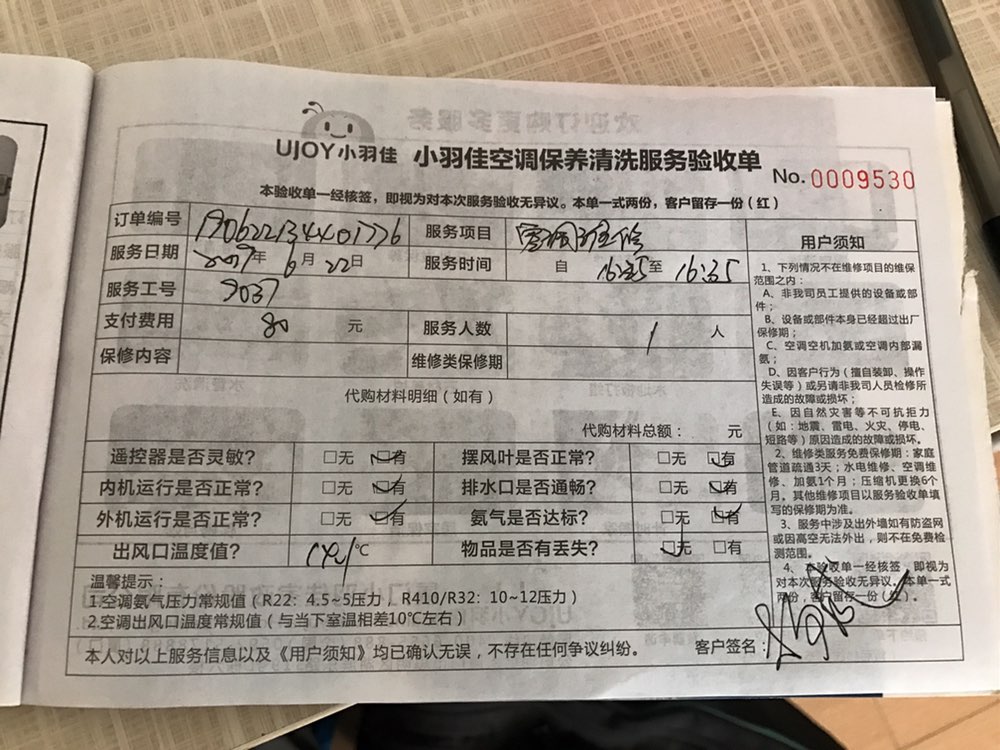 UJOY小羽佳 小羽佳空调保养清洗服务验收单
No. 0009530
本验收单一经核签，即视为对本次服务验收无异议。本单一式两份，客户留存一份（红）
订单编号 190622134401776 服务项目
服务日期 2019年 6月 22日 服务时间 自 16:35至 16:35
服务工号 9037
支付费用 80 元 服务人数 1 人
保修内容 维修类保修期
代购材料明细（如有）
代购材料总额： 元
遥控器是否灵敏? □无 □有 摆风叶是否正常? □无 □有
内机运行是否正常? □无 □有 排水口是否通畅? □无 □有
外机运行是否正常? □无 □有 氨气是否达标? □无 □有
出风口温度值? ℃ 物品是否有丢失? □无 □有
温馨提示：
1.空调氨气压力常规值（R22: 4.5~5压力，R410/R32: 10~12压力）
2.空调出风口温度常规值（与当下室温相差10℃左右）
本人对以上服务信息以及《用户须知》均已确认无误，不存在任何争议纠纷。 客户签名：
用户须知
1、下列情况不在维修项目的维保
范围之内：
A、非我司员工提供的设备或部
件；
B、设备或部件本身已经超过出厂
保修期；
C、空调空机加氨或空调内部漏
氨；
D、因客户行为（擅自装卸、操作
失误等）或另请非我司人员检修所
造成的故障或损坏；
E、因自然灾害等不可抗拒力
（如：地震、雷电、火灾、停电、
短路等）原因造成的故障或损坏。
2、维修类服务免费保修期：家庭
管道疏通3天；水电维修、空调维
修、加氨1个月；压缩机更换6个
月，其他维修项目以服务验收单填
写的保修期为准。
3、服务中涉及出外墙如有防盗网
或因高空无法外出，则不在免费检
测范围。
4、本验收单一经核签，即视为
对本次服务验收无异议。本单一式
两份，客户留存一份（红）。